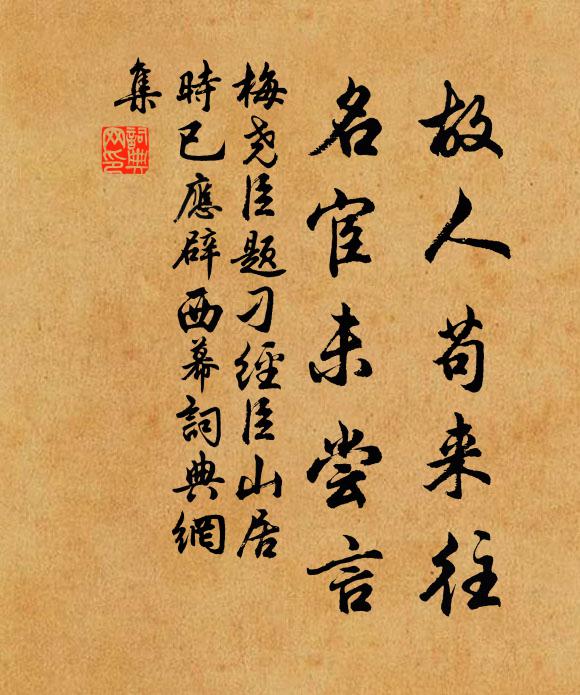 故人苟来往
名宦未尝言
梅尧臣题刁經臣山居
時已應辟西幕詞典網
集
詞典
网印